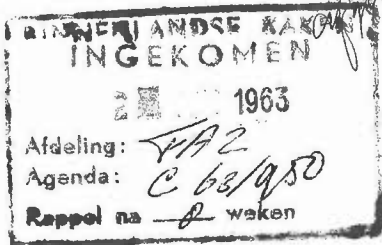 BINNENLANDSE ZAKEN
INGEKOMEN
2 1963
Afdeling: FAZ
Agenda: C 63/950
Rappel na 8 weken